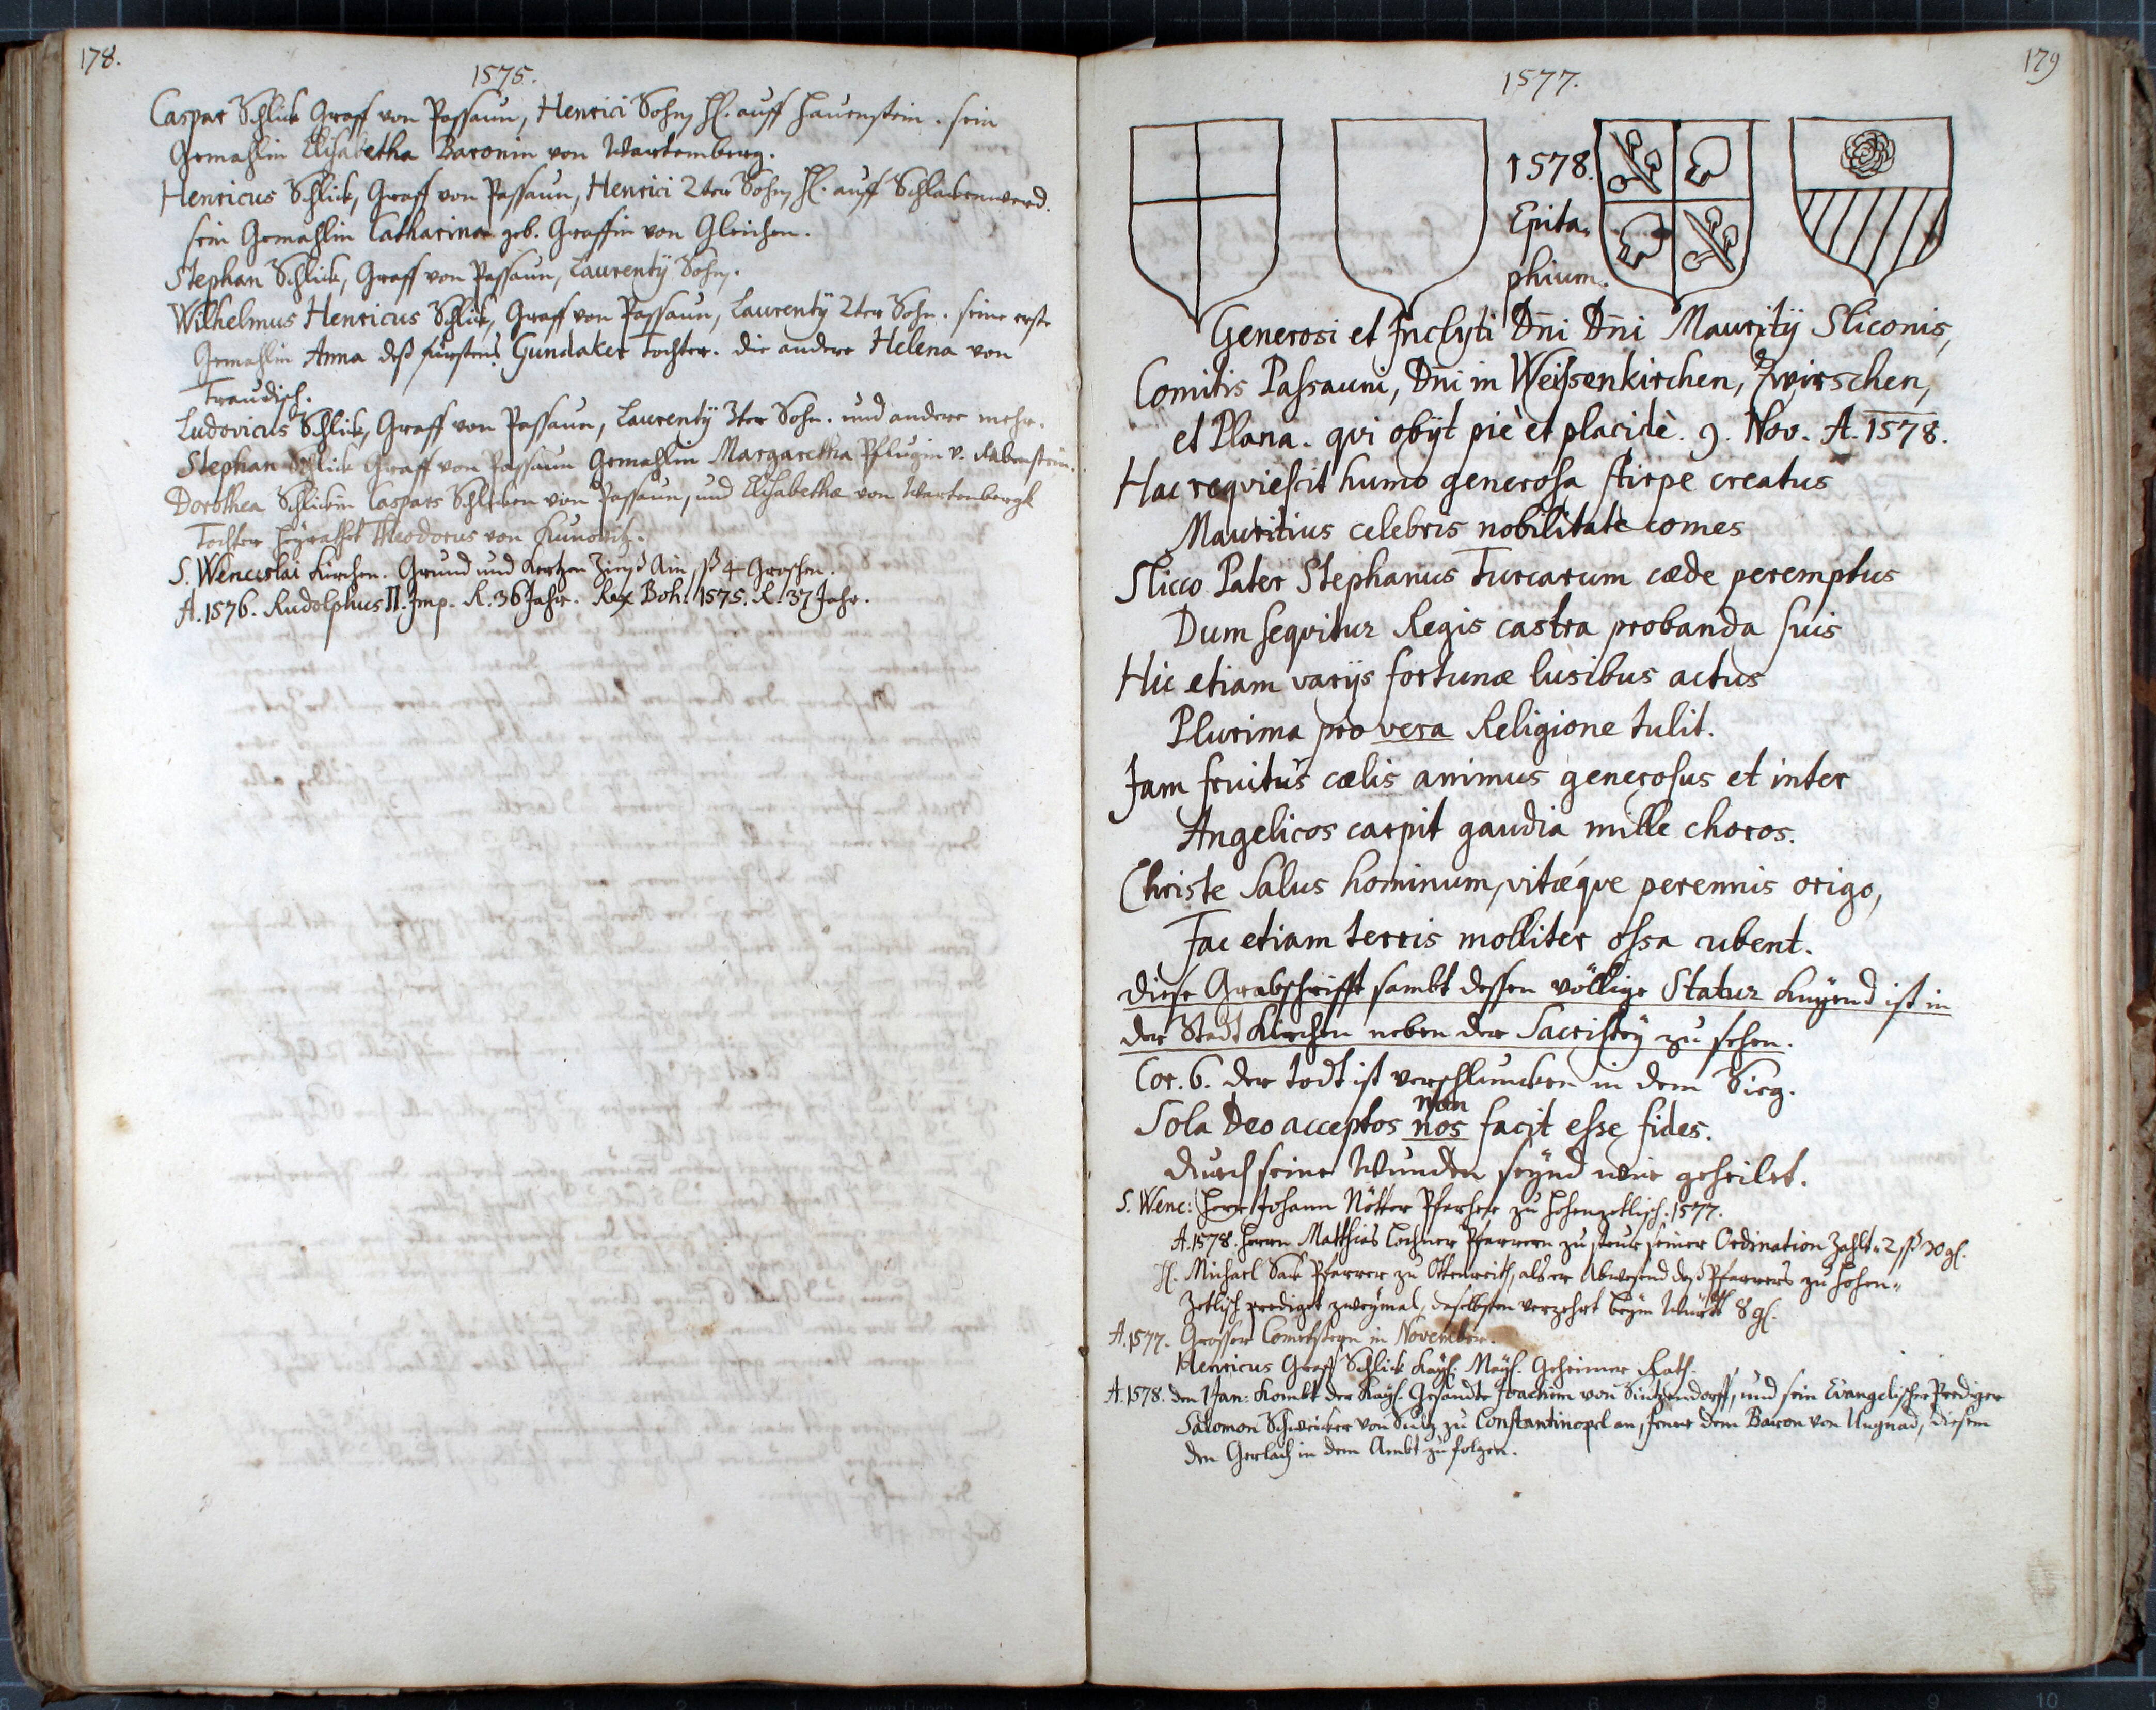 178.
1575.
Caspar Schlick Graff von Passaun, Henrici Sohn, H. auff Hauenstein. sein
Gemahlin Elisabetha Baronin von Wartemberg.
Henricus Schlick, Graff von Passaun, Henrici 2ter Sohn, H. auff Schlackenwerd.
sein Gemahlin Catharina geb. Graffin von Gleichen.
Stephan Schlick, Graff von Passaun, Laurentÿ Sohn.
Wilhelmus Henricus Schlick, Graff von Passaun, Laurentÿ 2ter Sohn. seine erste
Gemahlin Anna deß fürstens Gundaker Tochter. die andere Helena von
Traudisch.
Ludovicus Schlick, Graff von Passaun, Laurentÿ 3ter Sohn. und andere mehr.
Stephan Schlick Graff von Passaun Gemahlin Margaretha Pflugin v. Rabenstein.
Dorothea Schlickin Caspars Schlicken von Passaun, und Elisabetha von Wartenbergk
Tochter heÿrathet Theodorus von Kunowitz.
S. Wenceslai Kirchen. Grund und Kertzen Zinß Ain ß 4 Groschen.
A. 1576. Rudolphus II. Imp. R. 36 Jahr. Rex Boh. 1575. R. 37 Jahr.
179
1577.
1578.
Epita,
phium.
Generosi et Inclÿti Dñi Dñi Mauritÿ Sliconis,
Comitis Passauni, Dñi in Weisenkirchen, Zwirschen,
et Plana. qvi obÿt piè et placidè. 9. Nov. A. 1578.
Hac reqviescit humo generosa stirpe creatus
Mauritius celebris nobilitate comes
Slicco Pater Stephanus Turcarum cæde peremptus
Dum seqvitur Regis castra probanda suis
Hic etiam varÿs fortunæ lusibus actus
Plurima pro vera Religione tulit.
Jam fruitus cœlis animus generosus et inter
Angelicos carpit gaudia mille choros.
Christe Salus hominum, vitæqve perennis origo,
Fac etiam terris molliter ossa cubent.
Diese Grabschrifft sambt dessen völlige Statur knÿend ist in
der Stadt Kirchen neben der Sacristeÿ zu sehen.
Cor. 6. der todt ist verschluncken in dem Sieg.
non
Sola Deo acceptos nos facit esse fides.
Durch seine Wunden seÿnd wir geheilet.
S. Wenc: Herr Johann Nötter Pfarherr zu Hohenzetlisch. 1577.
A. 1578. Herrn Matthias Lochner Pfarrern zu steur seiner Ordination Zahlt. 2 ß 30 gl.
H. Michael Sack Pfarrer zu Ottenreith, als er Abwesend deß Pfarrers zu Hohen-
Zetlisch prediget zweÿmal, daselbsten verzehrt beÿm Würth 8 gl.
A. 1577. Grosser Cometstern in November.
Henricus Graff Schlick Kaÿs. Maÿs. Geheimer Rath.
A. 1578. den 1 Jan: kombt der Kaÿs. Gesandte Joachim von Sintzendorff, und sein Evangelischer Prediger
Salomon Schweicker von Sultz zu Constantinopel an, Jener dem Baron von Ungnad, diesem
den Gerlach in dem Ambt zu folgen.